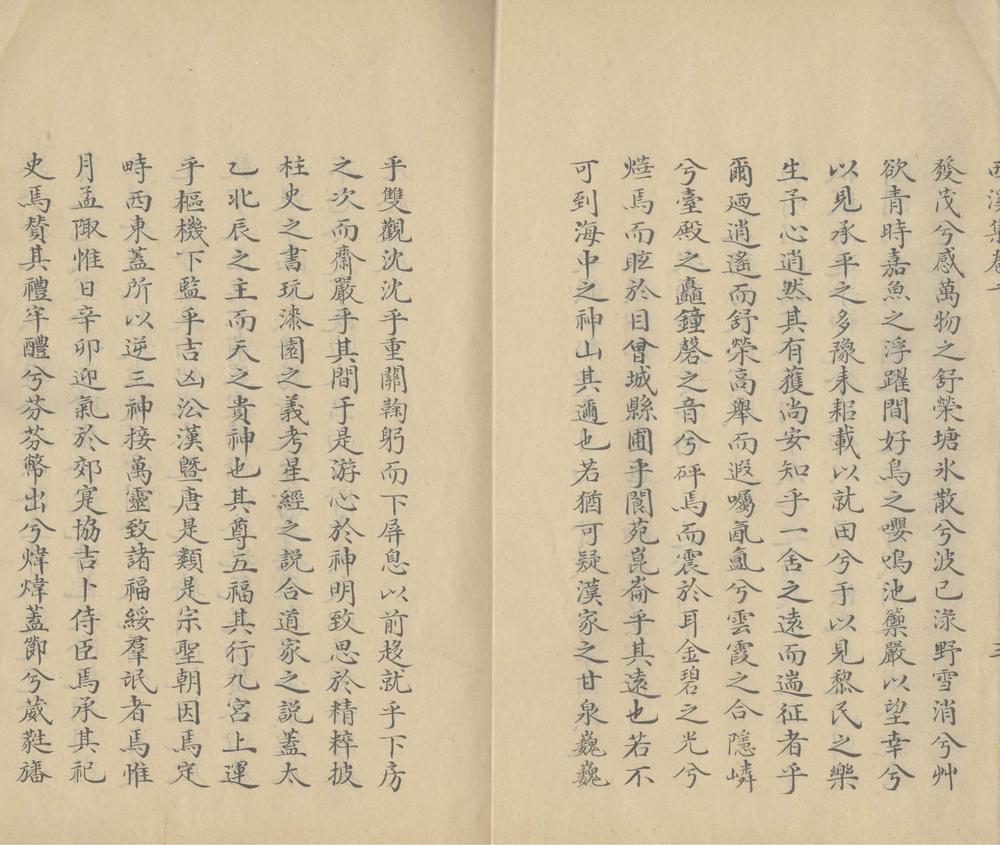 西溪集卷一 三
發茂兮感萬物之舒榮塘氷散兮波已渌野雪消兮艸
欲青時嘉魚之浮躍間好鳥之嚶鳴池籞嚴以望幸兮
以見承平之多豫耒耜載以就田兮于以見黎民之樂
生予心逍然其有蒦尚安知乎一舍之遠而遄征者乎
爾廼逍遙而舒榮高舉而遐矚氤氳兮雲霞之合隱嶙
兮臺殿之矗鐘磬之音兮砰焉而震於耳金碧之光兮
爀焉而眩於目曾城縣圃乎閬苑崑崙乎其遠也若不
可到海中之神山其邇也若猶可疑漢家之甘泉巍巍
乎雙觀沈沈乎重關鞠躬而下屏息以前趍就乎下房
之次而齋嚴乎其間于是游心於神明致思於精粹披
柱史之書玩漆園之義考星經之説合道家之説蓋太
乙北辰之主而天之貴神也其尊五福其行九宮上運
乎樞機下監乎吉凶㳂漢曁唐是類是宗聖朝因焉定
畤西東蓋所以逆三神接萬靈致諸福綏羣氓者焉惟
月孟陬惟日辛卯迎氣於郊寔協吉卜侍臣焉承其祀
史焉賛其禮牢醴兮芬芬幣出兮煒煒蓋節兮葳蕤旛